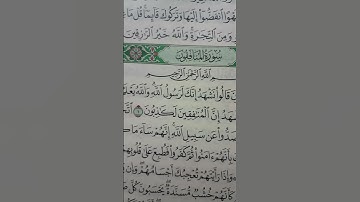 هْوًا ٱنفَضُّوٓا۟ إِلَيْهَا وَتَرَكُوكَ قَآئِمًا قُلْ مَا
وَمِنَ ٱلتِّجَٰرَةِ وَٱللَّهُ خَيْرُ ٱلرَّٰزِقِينَ
سُورَةُ المُنَافِقُونَ
بِسْمِ ٱللَّهِ ٱلرَّحْمَٰنِ ٱلرَّحِيمِ
نَ قَالُوا۟ نَشْهَدُ إِنَّكَ لَرَسُولُ ٱللَّهِ وَٱللَّهُ يَعْلَ
شْهَدُ إِنَّ ٱلْمُنَٰفِقِينَ لَكَٰذِبُونَ ١ ٱتَّخَ
صَدُّوا۟ عَن سَبِيلِ ٱللَّهِ إِنَّهُمْ سَآءَ مَا كَ
بِأَنَّهُمْ ءَامَنُوا۟ ثُمَّ كَفَرُوا۟ فَطُبِعَ عَلَىٰ قُلُوبِهِمْ
وَإِذَا رَأَيْتَهُمْ تُعْجِبُكَ أَجْسَامُهُمْ وَإِن
كَأَنَّهُمْ خُشُبٌ مُّسَنَّدَةٌ يَحْسَبُونَ كُلَّ صَ